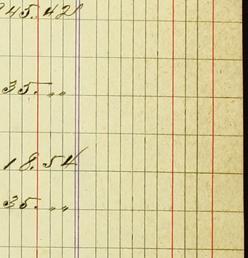 945.42
35. „
18.54
35. „